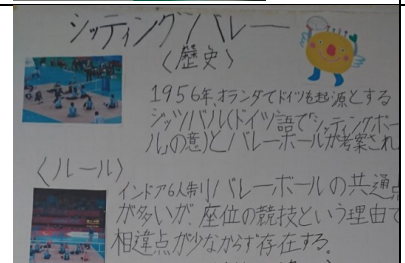 シッティングバレー
〈歴史〉
1956年オランダでドイツを起源とする
シッツバル(ドイツ語で「シッティングボー
ル」の意)とバレーボールが考案され
〈ルール〉
インドア6人制バレーボールの共通点
が多いが、座位の競技という理由で
相違点が少なからず存在する。